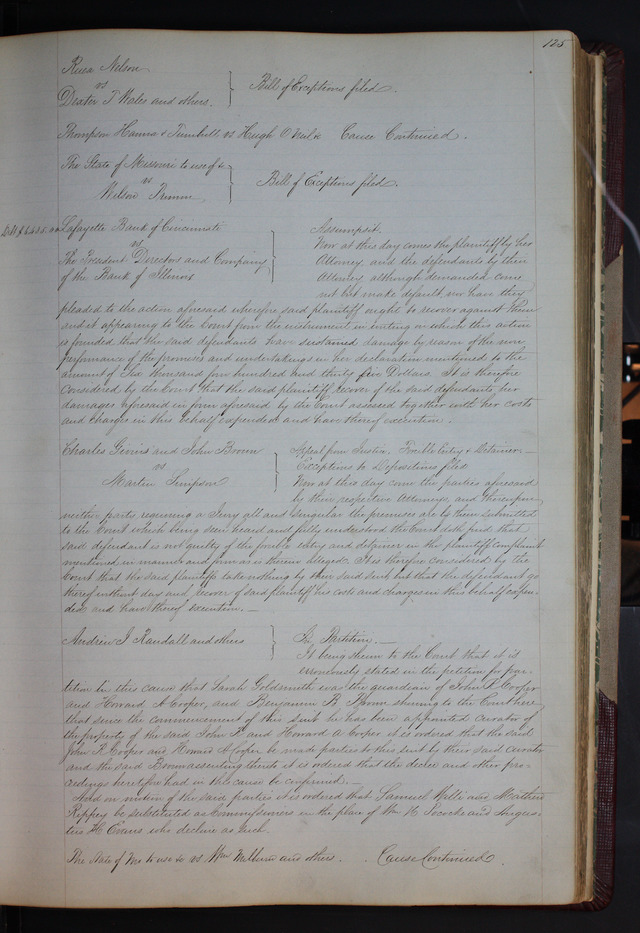 125
Nelson
vs
Dexter T Wales and others.
Bill of Exceptions filed.
Thompson Hanna & Turnbull vs Hugh O Neil Cause Continued.
The State of Missouri to use of &
vs
Wilson Primm
Bill of Exceptions filed.
Lafayette Bank of Cincinnati
vs
The President Directors and Company
of the Bank of Illinois
Assumpsit.
Now at this day comes the plaintiff by her
Attorney, and the defendants by their
Attorney although demanded come
not but make default, nor have they
pleaded to the action aforesaid wherefore said plaintiff ought to recover against them
and it appearing to the Court from the instrument in writing on which this action
is founded, that the said defendants have sustained damage by reason of the non
performance of the promises and undertakings in her declaration mentioned to the
amount of Six thousand four hundred and thirty five Dollars. It is therefore
Considered by the Court that the said plaintiff recover of the said defendants her
damages aforesaid in form aforesaid by the Court assessed together with her costs
and charges in this behalf expended and have thereof execution.
Charles and John
vs
Martin Simpson
Appeal from Justice. Forcible Entry & Detainer.
Exceptions to Depositions filed
Now at this day come the parties aforesaid
by their respective Attorneys, and thereupon
neither party requiring a Jury all and singular the premises are to them submitted
to the Court which being seen heard and fully understood the Court doth find that
said defendant is not guilty of the forcible entry and detainer in the plaintiffs Complaint
mentioned in manner and form as is therein alleged. It is therefore considered by the
Court that the said plaintiffs take nothing by their said suit, but that the defendant go
thereof without day and recover of said plaintiff his costs and charges in this behalf expen-
ded, and have thereof execution.
Andrew J Randall and others
Partition.
It being shown to the Court that it is
erroneously stated in the petition for par-
tition in this cause that Sarah Goldsmith was the guardian of John F Cooper
and Howard A Cooper, and Benjamin B shewing to the Court here
that since the commencement of this suit he has been appointed curator of
the property of the said John F and Howard A Cooper it is ordered that the said
John F Cooper and Howard A Cooper be made parties to this suit by their said curator
and the said assenting thereto it is ordered that the decree and other pro-
ceedings heretofore had in this cause be confirmed.
And on motion of the said parties it is ordered that Samuel Willi and Matthew
Rippey be substituted as Commissioners in the place of Wm H Pococke and Augus-
tus H Evans who decline as such.
The State of Mo to use &c vs Wm Milburn and others. Cause Continued.